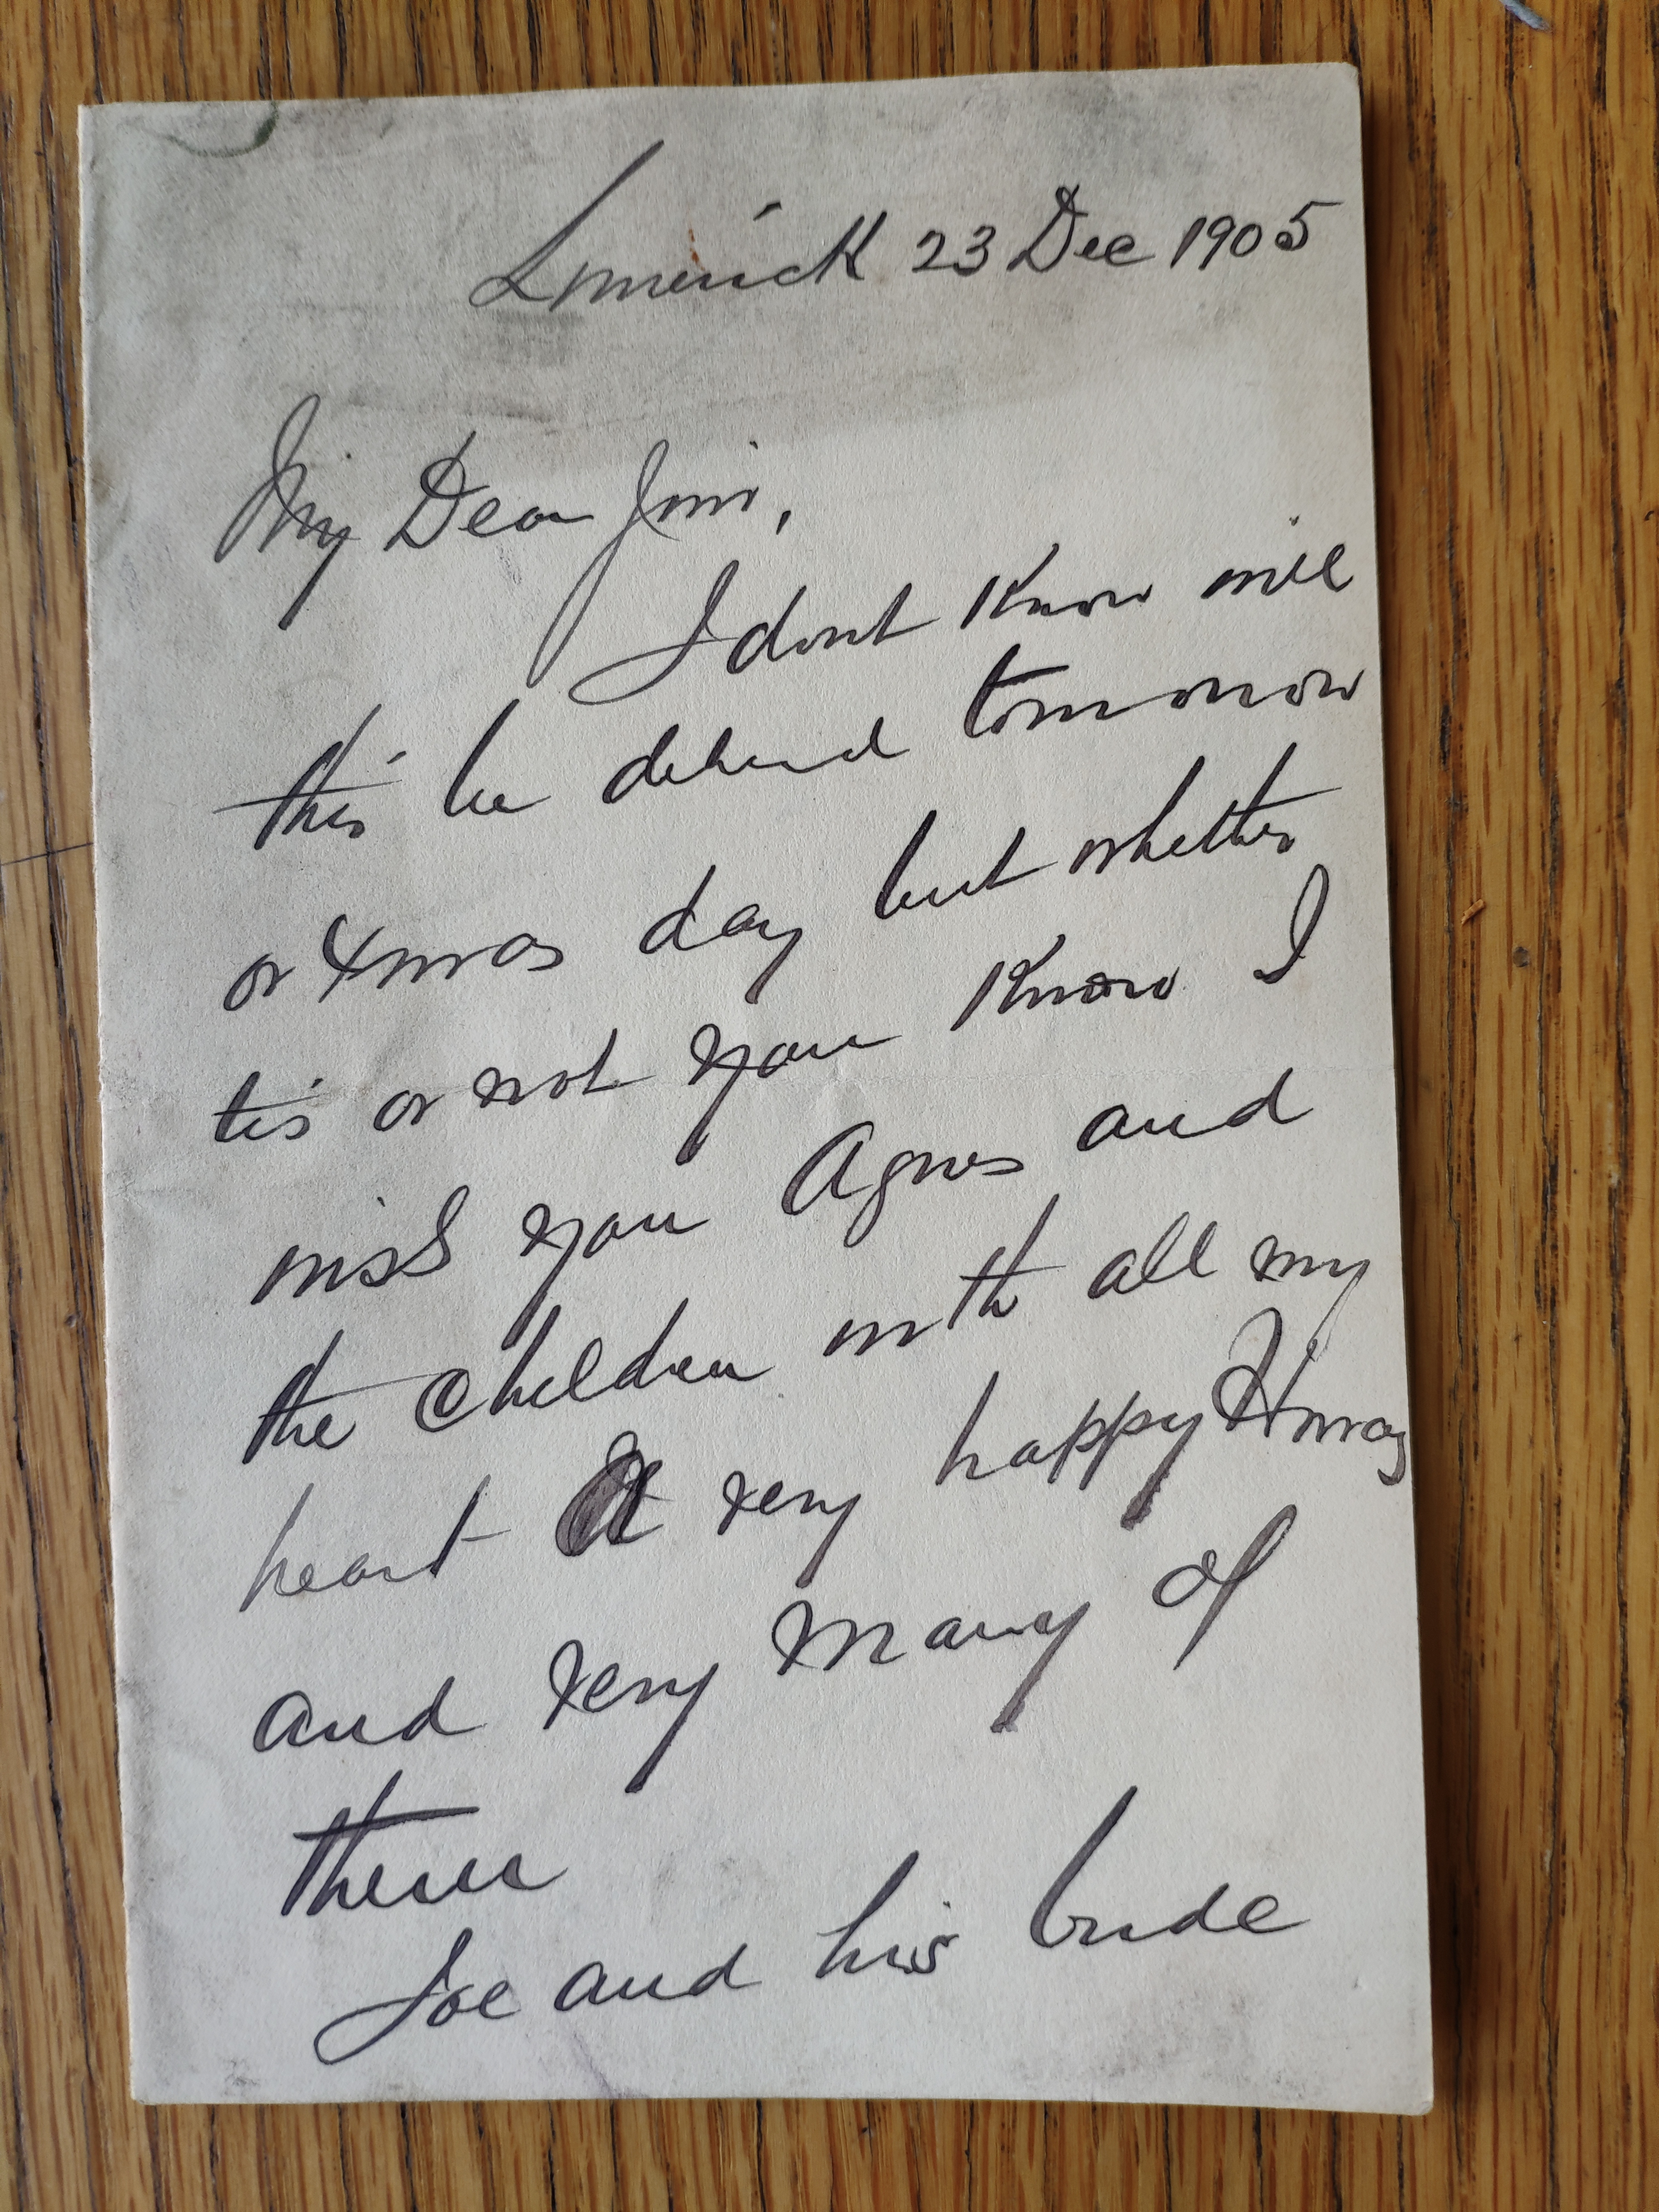 Limerick 23 Dec 1905
My Dear Jim,
I dont Know will
this be delivered tomorrow
or Xmas day but whether
tis or not you Know I
miss you Agnes and
the Children with all my
heart A very happy Xmas
and very many of
them
Joe and his bride